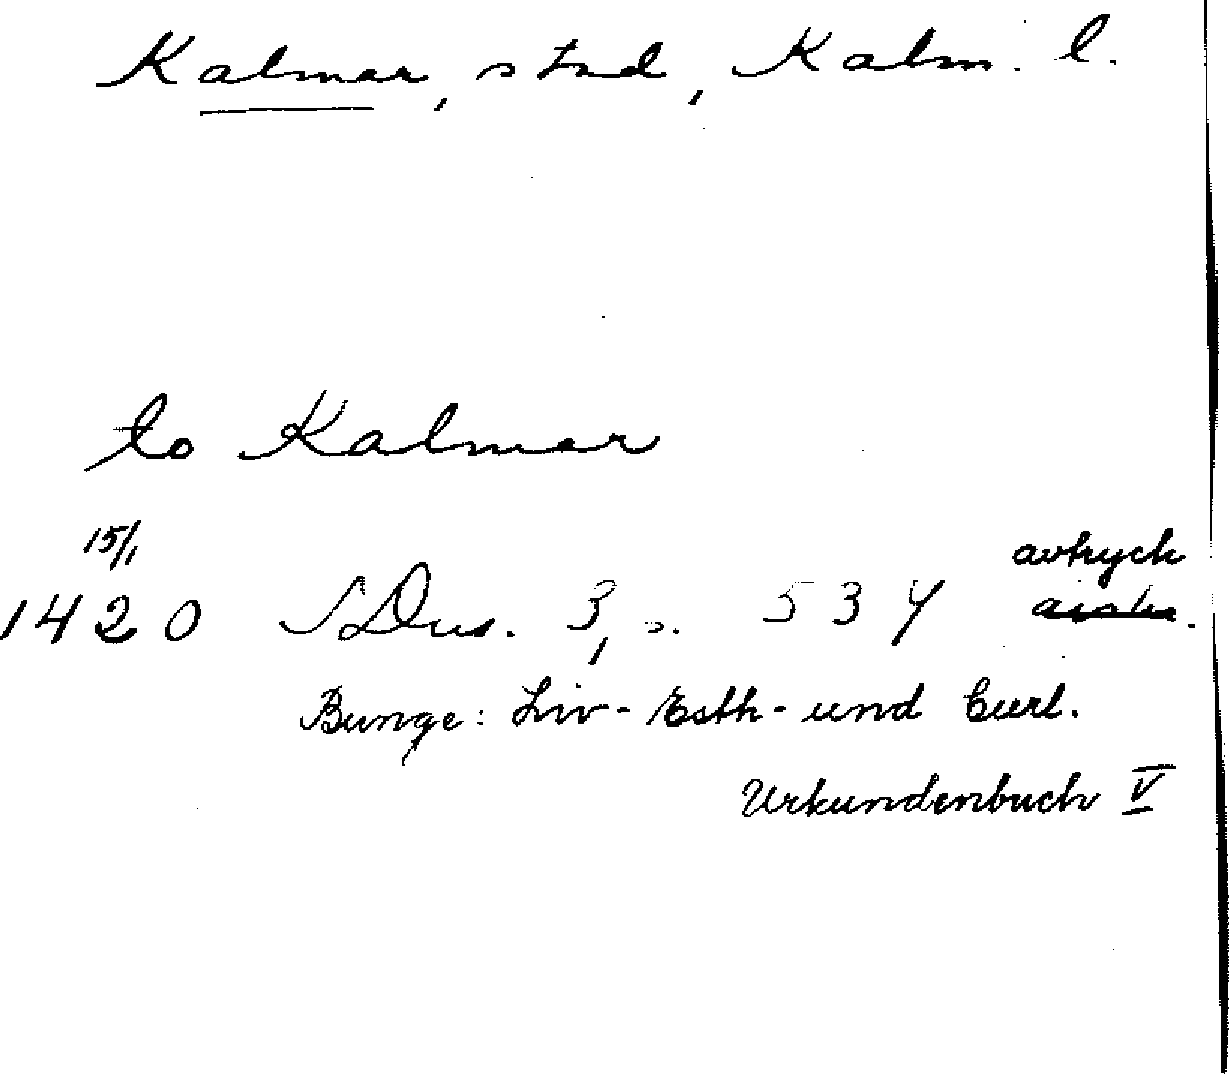 Kalmar, stad, Kalm. l.
to Kalmar
15/1
1420 SDns. 3, s. 537 avtryck
Bunge: Liv-Esth-und Curl.
Urkundenbuch V